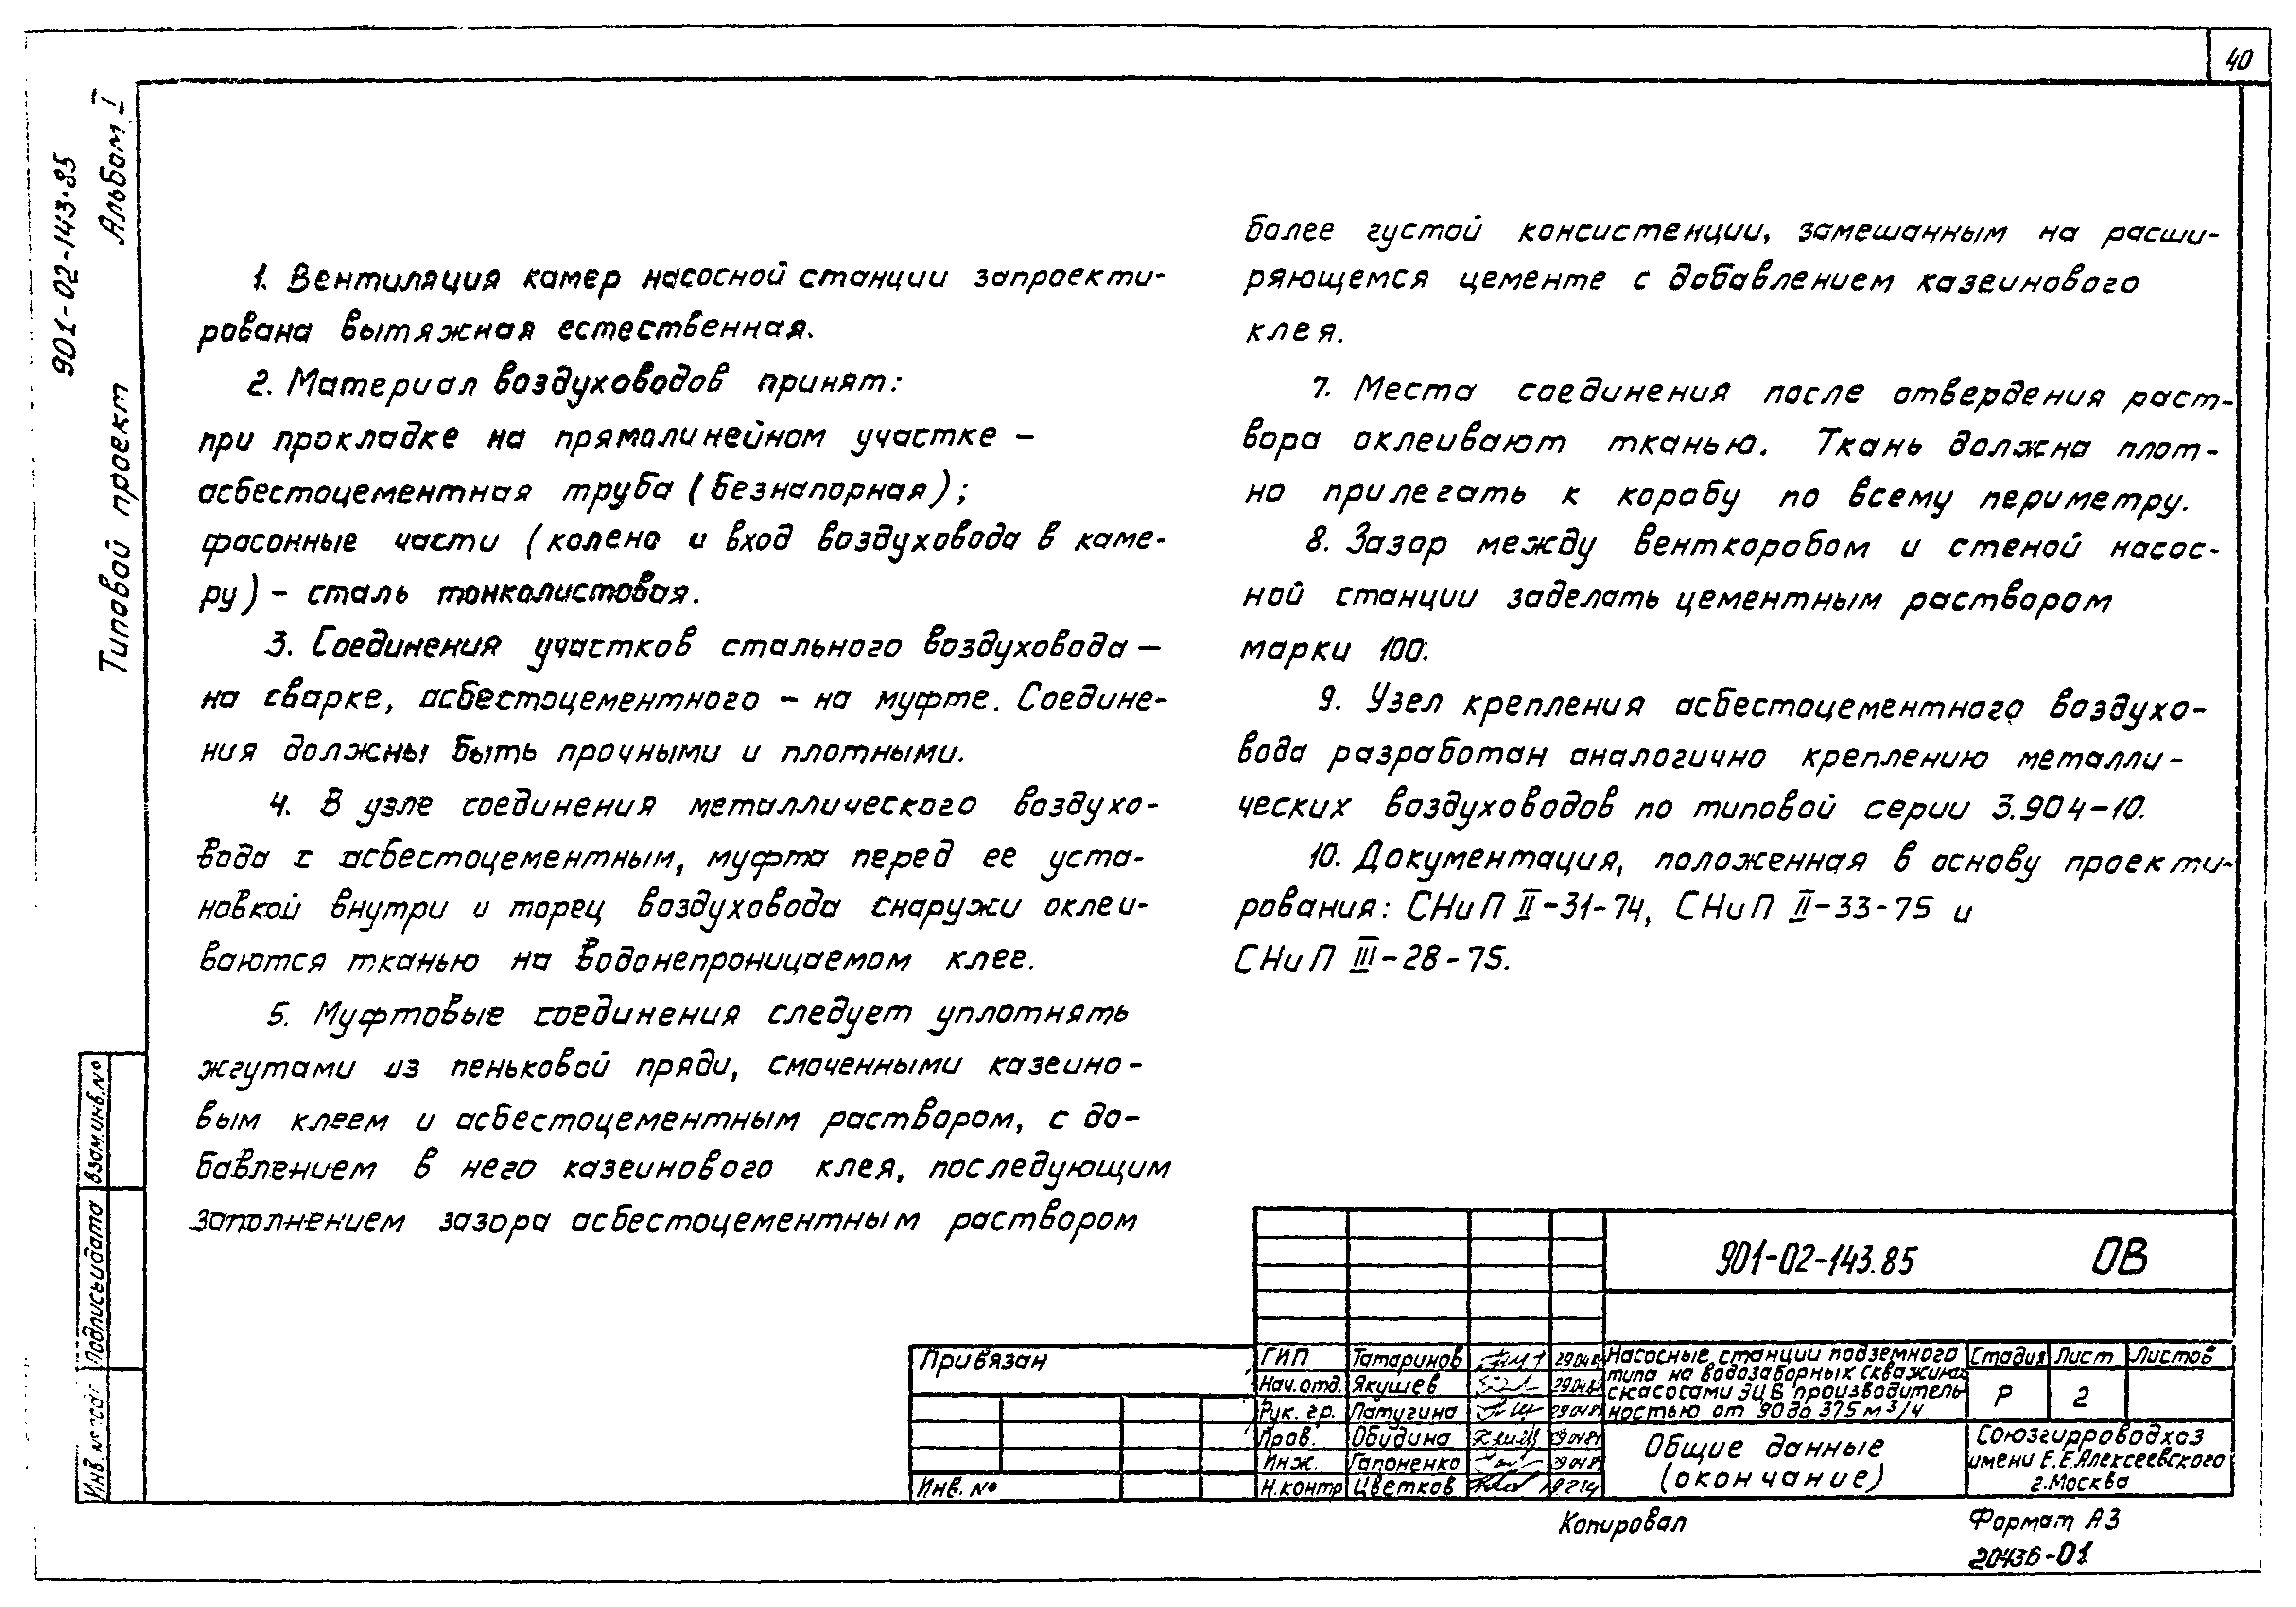 40
901-02-143.85
Альбом I
Типовой проект
1. Вентиляция камер насосной станции запроекти-
рована вытяжная естественная.
2. Материал воздуховодов принят:
при прокладке на прямолинейном участке –
асбестоцементная труба (безнапорная);
фасонные части (колено и вход воздуховода в каме-
ру) – сталь тонколистовая.
3. Соединения участков стального воздуховода –
на сварке, асбестоцементного – на муфте. Соедине-
ния должны быть прочными и плотными.
4. В узле соединения металлического воздухо-
вода с асбестоцементным, муфта перед ее уста-
новкой внутри и торец воздуховода снаружи оклеи-
ваются тканью на водонепроницаемом клее.
5. Муфтовые соединения следует уплотнять
жгутами из пеньковой пряди, смоченными казеино-
вым клеем и асбестоцементным раствором, с до-
бавлением в него казеинового клея, последующим
заполнением зазора асбестоцементным раствором
более густой консистенции, замешанным на расши-
ряющемся цементе с добавлением казеинового
клея.
7. Места соединения после отвердения раст-
вора оклеивают тканью. Ткань должна плот-
но прилегать к коробу по всему периметру.
8. Зазор между венткоробом и стеной насос-
ной станции заделать цементным раствором
марки 100.
9. Узел крепления асбестоцементного воздухо-
вода разработан аналогично креплению металли-
ческих воздуховодов по типовой серии 3.904-10.
10. Документация, положенная в основу проекти-
рования: СНиП II-31-74, СНиП II-33-75 и
СНиП III-28-75.
Взам.инв.№
Подпись и дата
Инв. №
Привязан
Инв. №
ГИП Татаринов
Нач.отд. Якушев
Рук. гр. Латугина
Пров. Обудина
Инж. Гапоненко
Н.контр Цветков
901-02-143.85 ОВ
Насосные станции подземного
типа на водозаборных скважинах
с насосами ЭЦВ производитель
ностью от 90 до 375 м³/ч
Стадия Лист Листов
Р 2
Общие данные
(окончание)
Союзгипроводхоз
имени Е.Е.Алексеевского
г.Москва
Копировал
Формат А3
20436-01